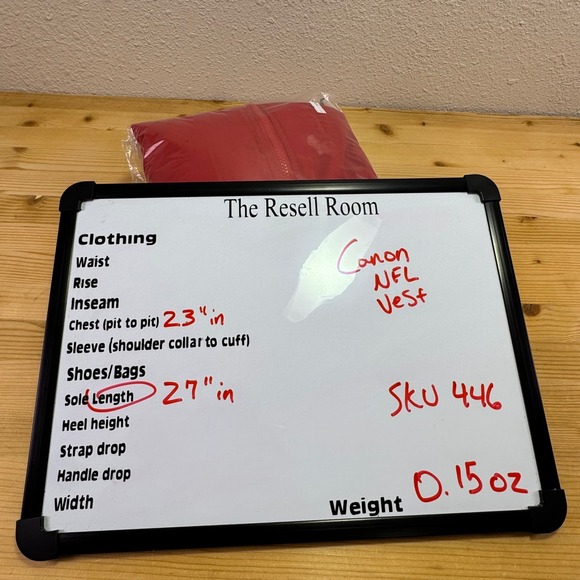 The Resell Room
Clothing
Waist
Rise
Inseam
Chest (pit to pit) 23" in
Sleeve (shoulder collar to cuff)
Shoes/Bags
Sole Length 27" in
Heel height
Strap drop
Handle drop
Width
Canon
NFL
Vest
SKU 446
Weight 0.15 oz